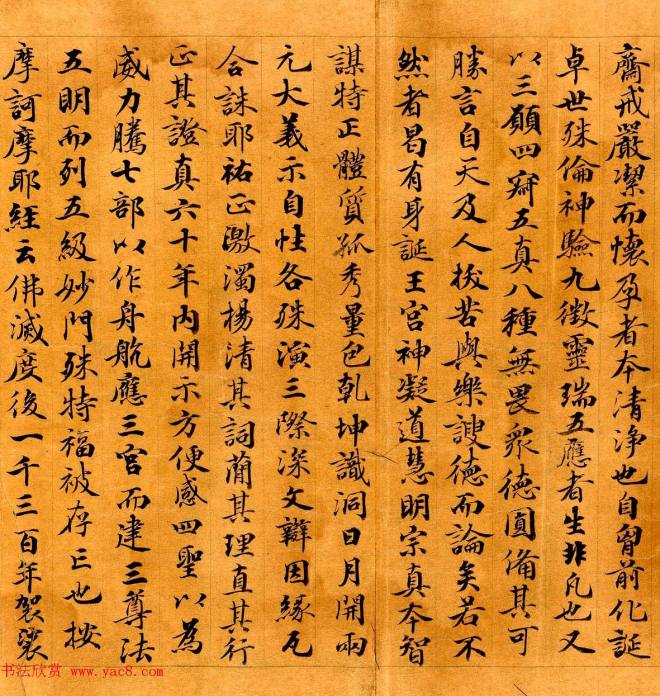 齋戒嚴潔而懷孕者本清淨也自胷前化誕
卓世殊倫神驗九徵靈瑞五應者生非凡也又
以三願四寂五真八種無畏眾德圓備其可
勝言自天及人拔苦與樂諛德而論矣若不
然者曷有身誕王宮神凝道慧明宗真本智
謀特正體質孤秀量包乾坤識洞日月開兩
元大義示自性各殊演三際深文辯因緣瓦
合誅耶祐正激濁揚清其詞蕳其理直其行
正其證真六十年內開示方便感四聖以為
威力騰七部以作舟航應三宮而建三尊法
五明而列五級妙門殊特福被存亡也按
摩訶摩耶經云佛滅度後一千三百年袈裟
书法欣赏 www.yac8.com